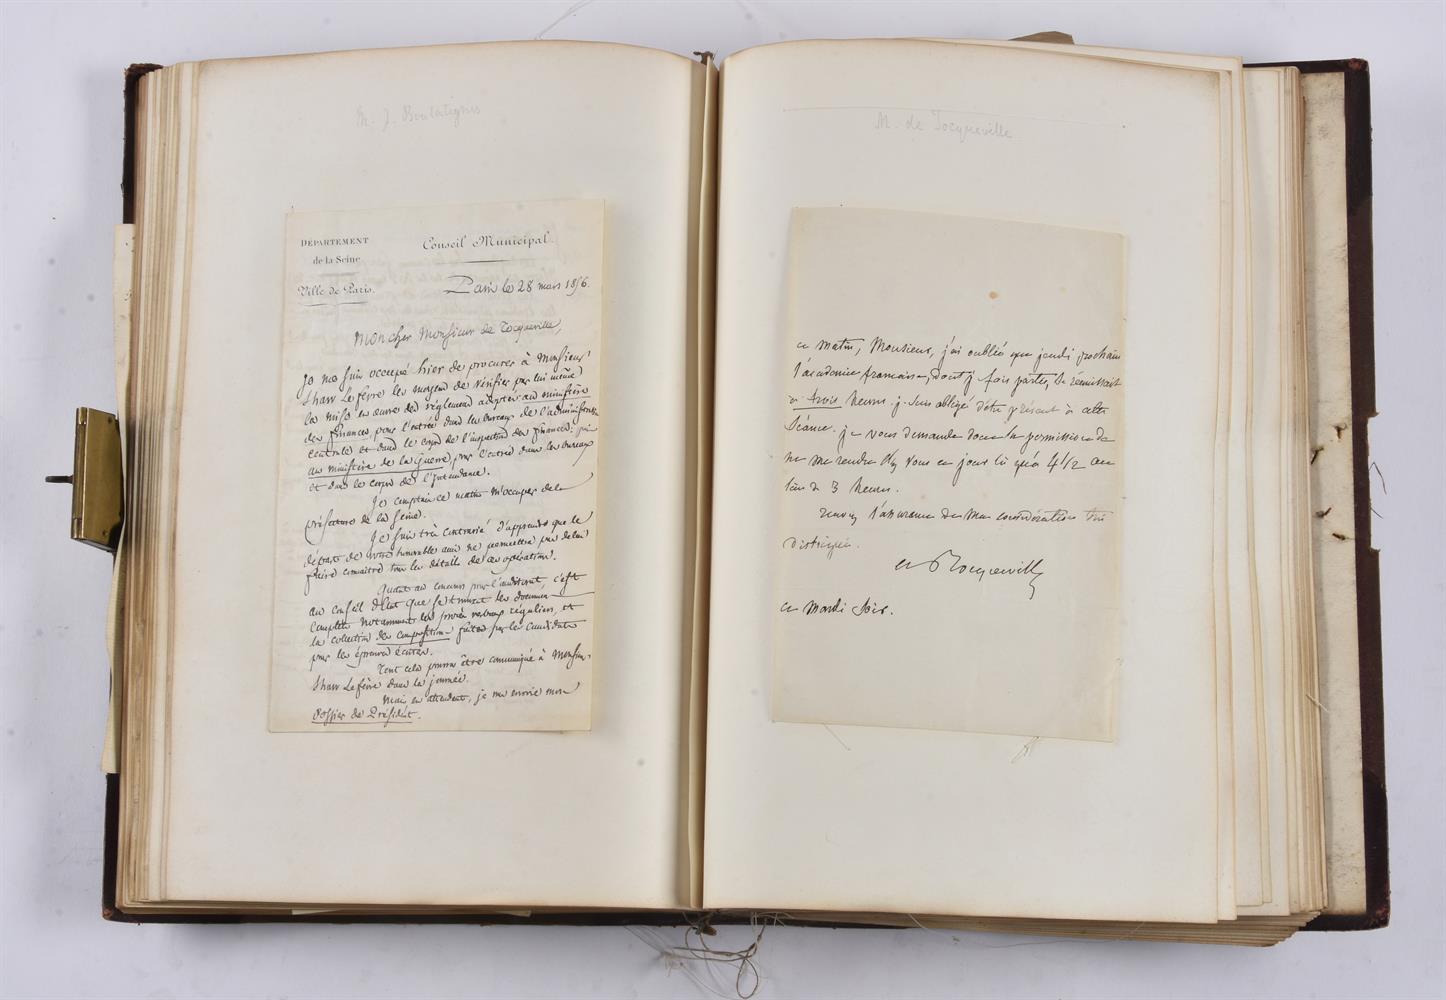 M. J. Boulatignier
DÉPARTEMENT
de la Seine
Ville de Paris.
Conseil Municipal.
Paris le 28 mars 1856.
Mon cher Monsieur de Tocqueville,
Je me suis occupé hier de procurer à Monsieur
Shaw Lefevre les moyens de vérifier par lui même
la mise en œuvre des réglemens adoptés au ministère
des finances pour l'entrée dans les bureaux de l'administration
centrale et dans le corps de l'inspection des finances; puis
au ministère de la guerre, pour l'entrée dans les bureaux
et dans le corps de l'Intendance.
Je comptais ce matin m'occuper de la
préfecture de la Seine.
Je suis très contrarié d'apprendre que le
départ de votre honorable ami ne permettra pas de lui
faire connaître tous les détails de ces opérations.
Quant au concours pour l'auditorat, c'est
au conseil d'Etat que se trouvent les documens
complets notamment les procès verbaux réguliers, et
la collection des compositions faites par les candidats
pour les épreuves écrites.
Tout cela pourra être communiqué à Monsieur
Shaw Lefèvre dans la journée.
Mais en attendant, je vous envoie mon
dossier de Président.
M. de Tocqueville
Ce matin, Monsieur, j'ai oublié que jeudi prochain
l'académie française, dont je fais partie, se réunissait
à trois heures. Je suis obligé d'être présent à cette
séance. Je vous demande donc la permission de
ne me rendre chez vous ce jour là qu'à 4 1/2 au
lieu de 3 heures.
Recevez l'assurance de ma considération très
distinguée.
A de Tocqueville
Ce Mardi soir.